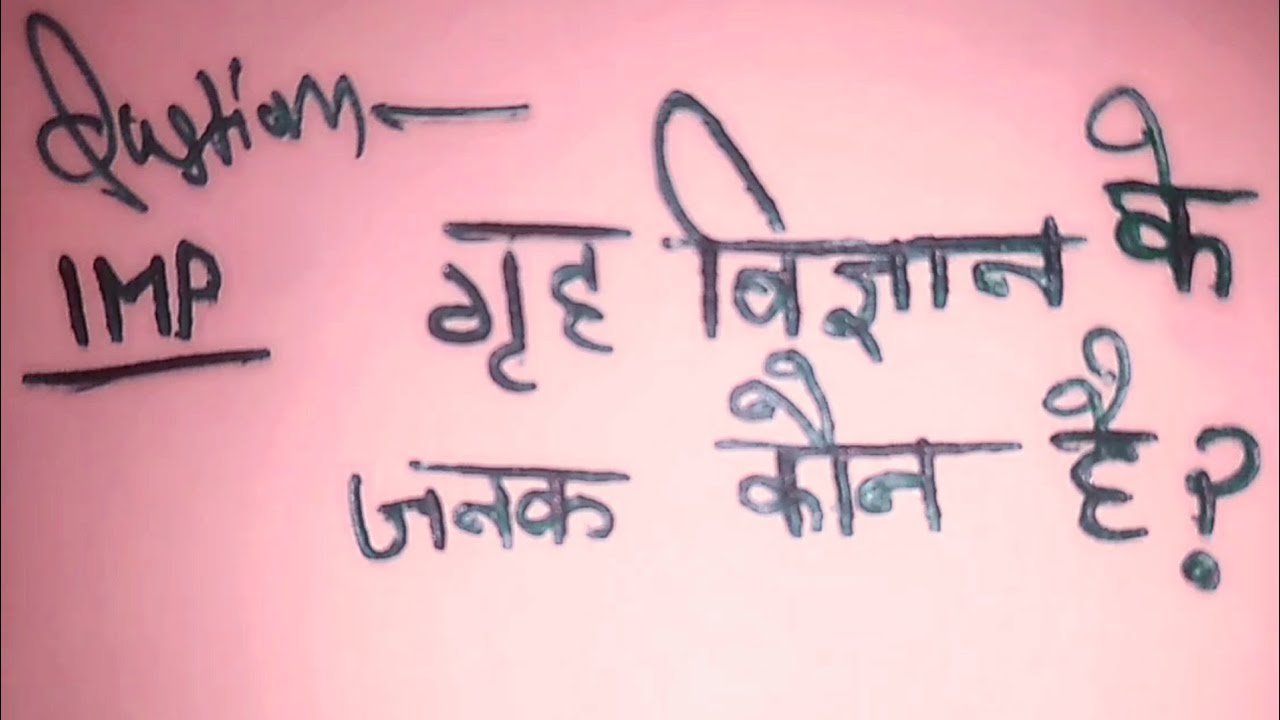 Question ←
IMP
गृह विज्ञान के
जनक कौन है?